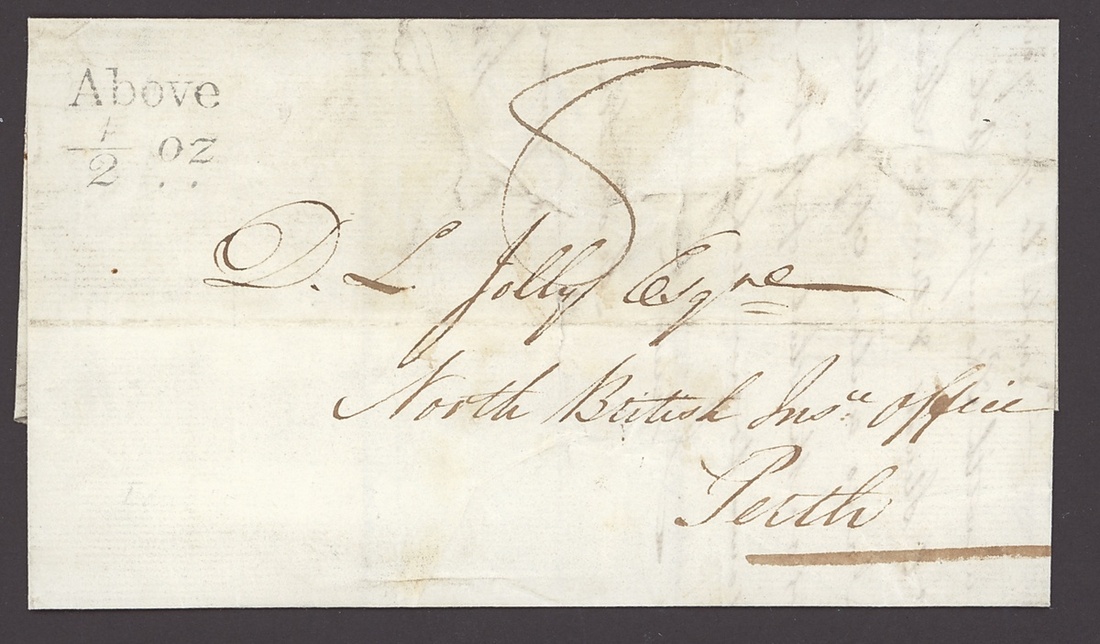 Above
1/2 oz
8
D. L. Jolly Esqre
North British Insce Office
Perth